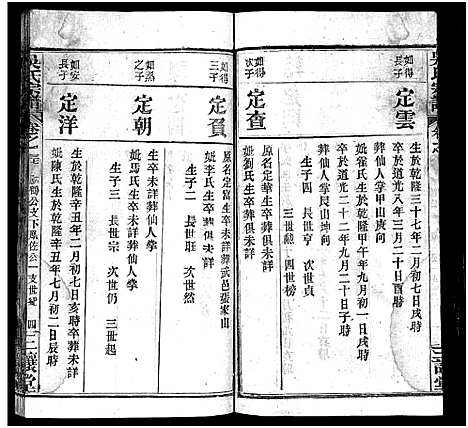 如得長子
定雲
生於乾隆三十七年二月初一日戌時
卒於道光八年三月二十日酉時
葬仙人掌甲山庚向
妣崔氏生於乾隆甲午年九月初一日時
卒於道光二十二年九月二十日子時
葬仙人掌艮山坤向
生子四 長世亨 次世貞
三世 四世榜
如得次子
定查
原名定華生卒葬俱未詳
妣劉氏生卒葬俱未詳
如得三子
定賀
原名定富生卒未詳葬武邑張家山
妣李氏生卒葬俱未詳
生子二 長世旺 次世然
如 之子
定朝
生卒未詳葬仙人掌
妣馬氏生卒未詳葬仙人掌
生子三 長世宗 次世仍 三世起
如安長子
定洋
生於乾隆辛丑年二月初七日亥時卒葬未詳
妣陳氏生於乾隆辛丑年七月初二日辰時
吳氏宗譜
卷之
公支下鳳佐公一支世紀
四
三讓堂